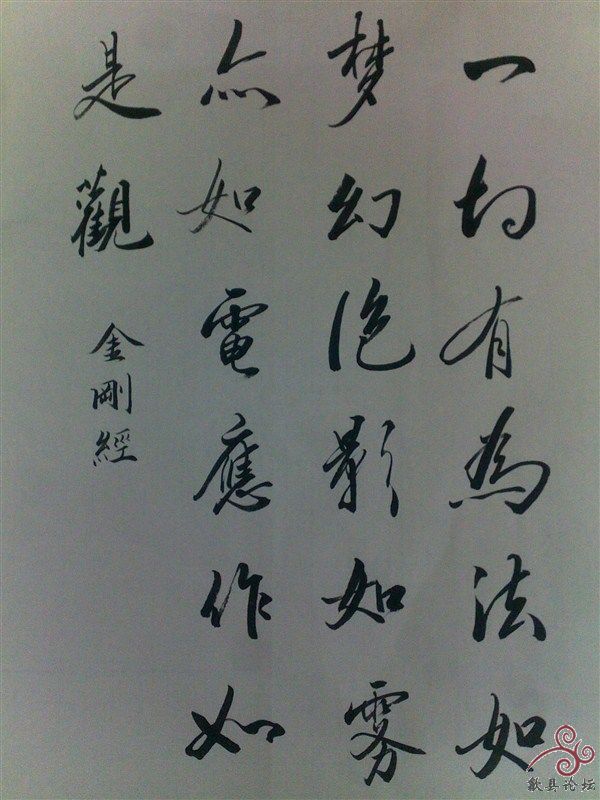 一切有為法如
梦幻泡影如雾
亦如電應作如
是觀
金剛經
歙县论坛